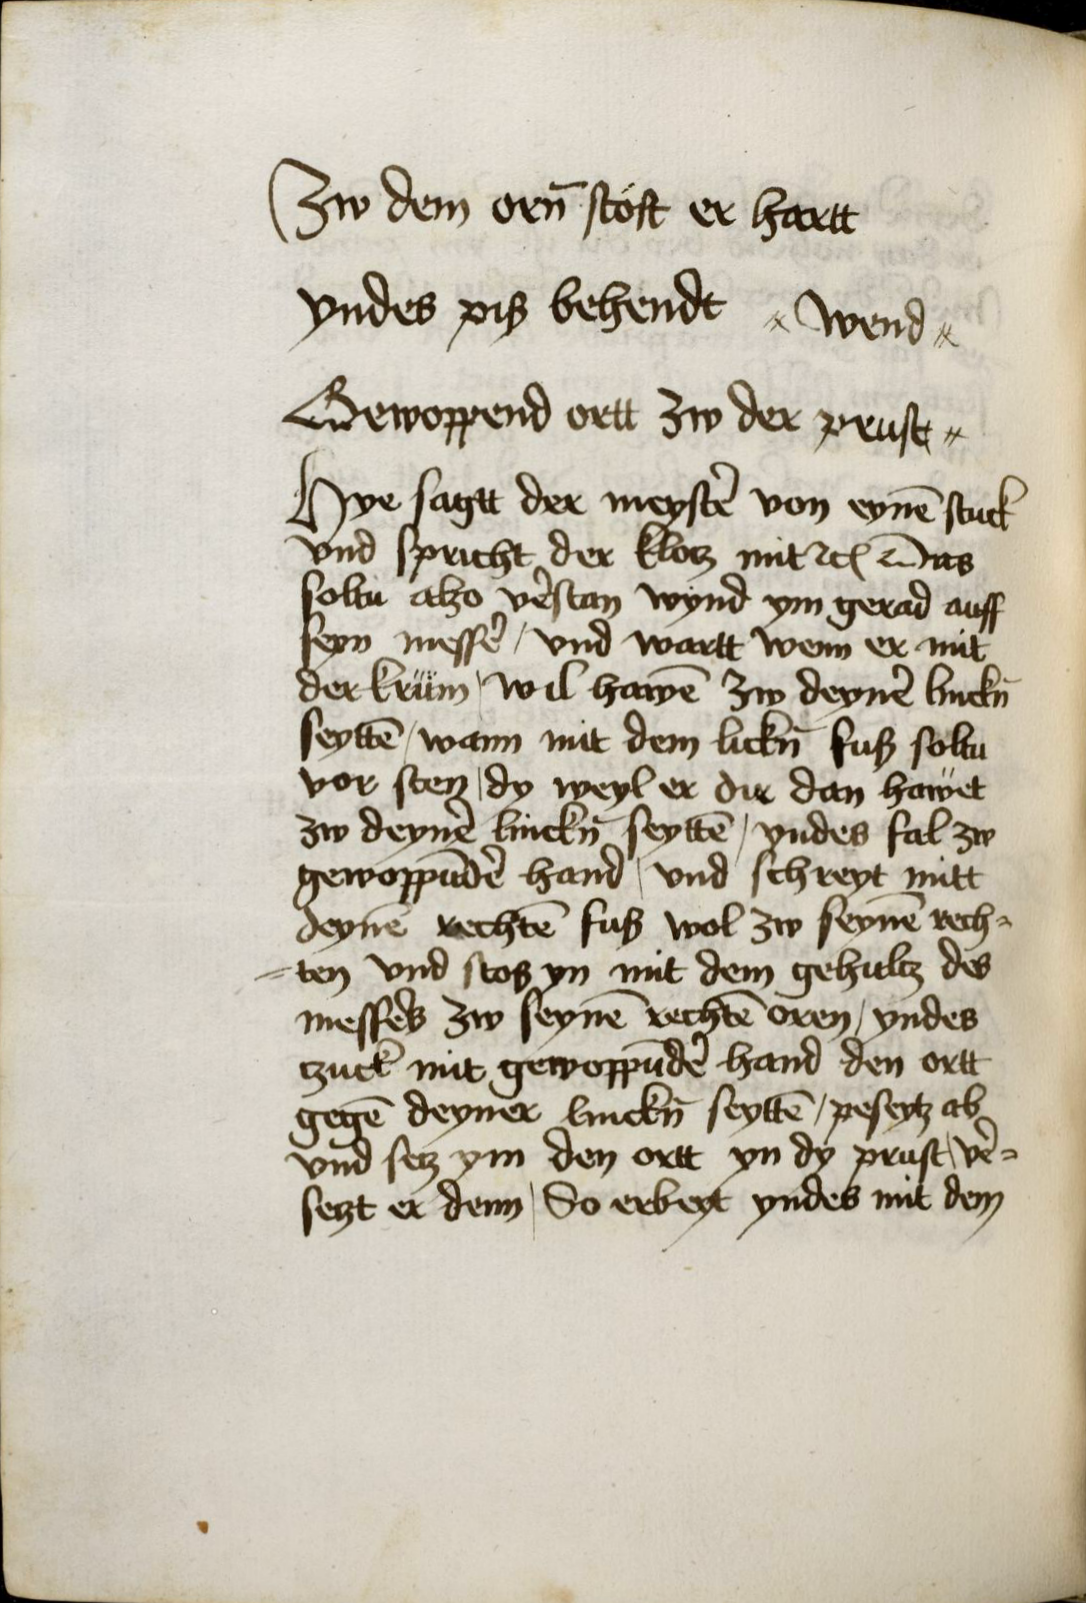 Zw dem orn̄ stöst er hartt
yndes piß behendt Wend
Gewoppend ortt zw der prust
Hye sagtt der meystẽ von eynē stuck
vnd spricht der klotz mit ꝛc̄ Das
soltu alzo vẽstan wynd ym gerad auff
seyn messẽ / vnd wartt wenn er mit
der krüm / wil hawē zw deynẽ linckn̄
seyttē / wann mit dem lickn̄ fuß soltu
vor sten / dy weyl er dir dan hawet
zw deynẽ linckn̄ seyttē / yndes fal zw
gewoppūdẽ hand / vnd schreyt mitt
deynē rechtē fuß wol zw seynē rech=
=ten vnd stoß yn mit dem gehultz des
messẽs zw seynē rechtē oren / yndes
tzuck mit gewoppūdẽ hand den ortt
gegē deyner linckn̄ seyttē / peseytz ab
vnd setz ym den ortt yn dy prust / vẽ=
setzt er denn / So erbeyt yndes mit dem